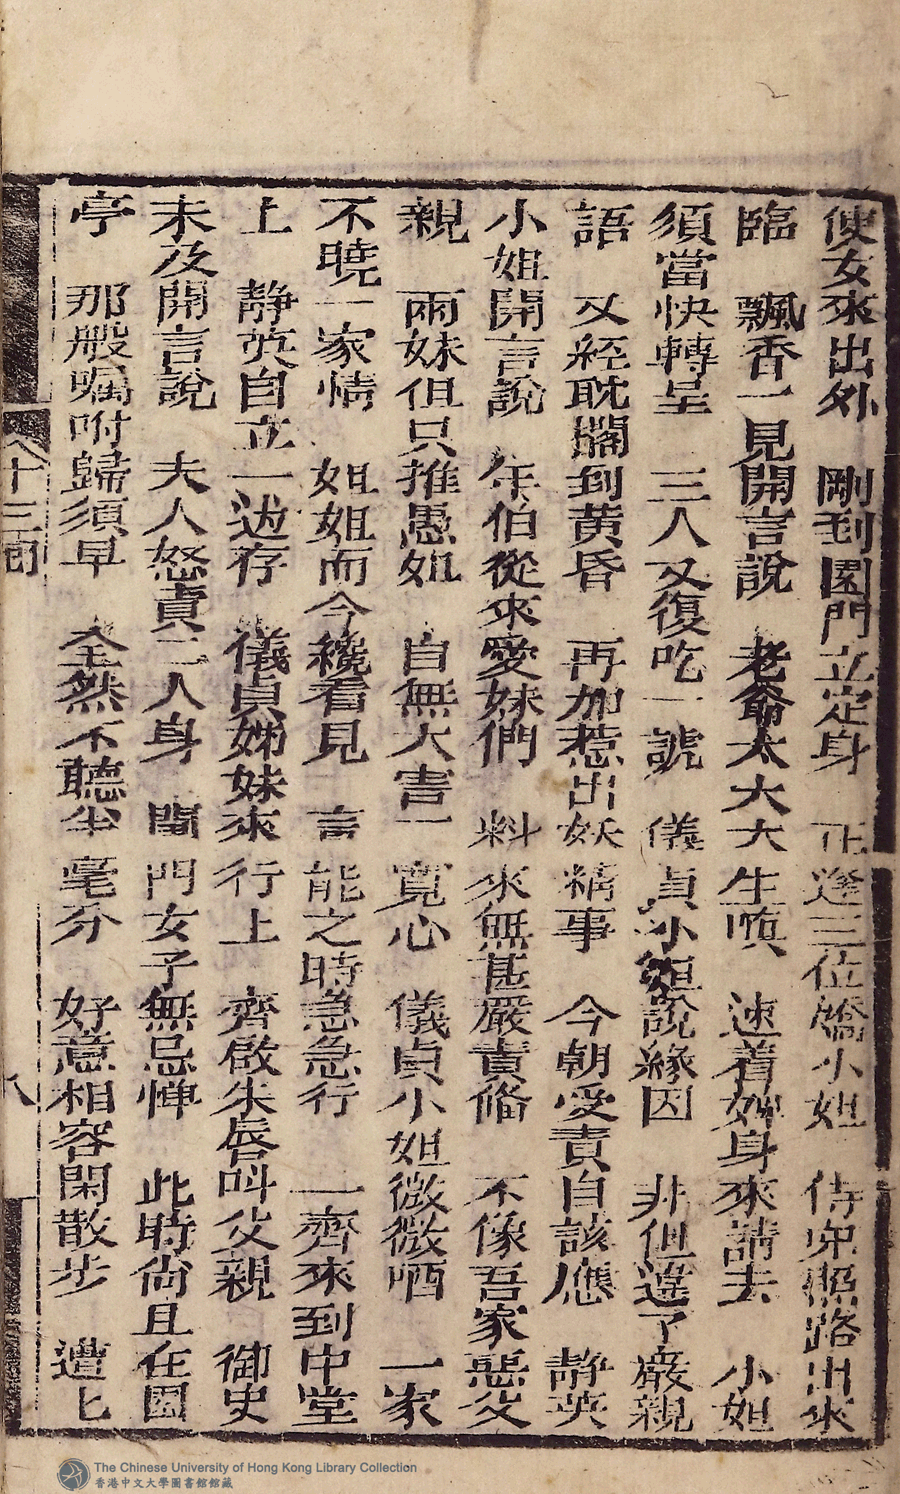 使女來出外　剛到園門立定身　正逢三位嬌小姐　侍兒照路出來
臨　飄香一見開言說　老爺太太大生嗔　速着婢身來請去　小姐
須當快轉呈　三人又復吃一諕　儀貞小姐說緣因　非但違了嚴親
語　又經耽擱到黄昏　再加惹出妖精事　今朝受責自該應　静英
小姐開言說　年伯從來愛妹們　料來無甚嚴責俻　不像吾家惡父
親　兩妹但只推愚姐　自無大害一寬心　儀貞小姐微微哂　一家
不曉一家情　姐姐而今纔看見　言能之時急急行　一齊來到中堂
上　静英自立一边存　儀貞姊妹來行上　齊啟朱唇呌父親　御史
未及開言說　夫人怒責二人身　閨門女子無忌憚　此時尙且在園
亭　那般嘱咐歸須早　全然不聽半毫分　好意相容閑散步　遭匕
十三回
八
The Chinese University of Hong Kong Library Collection
香港中文大學圖書館館藏